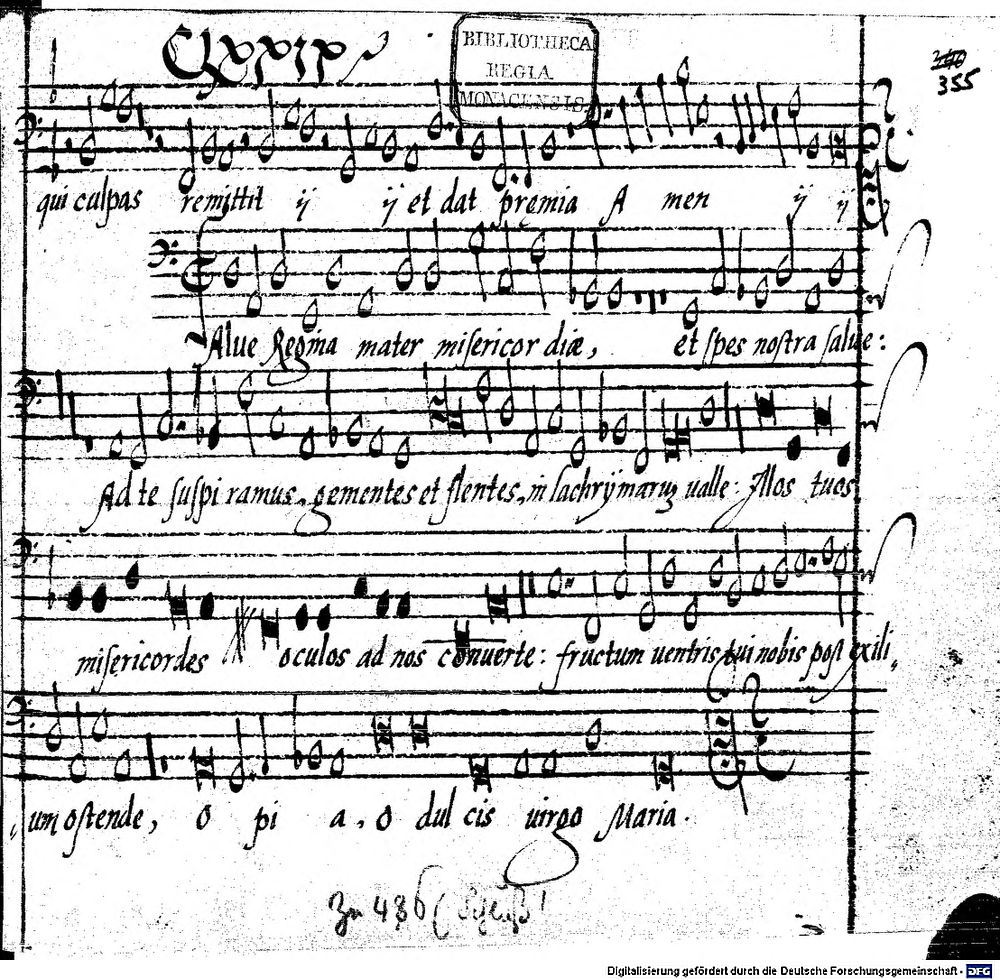 BIBLIOTHECA
REGIA
MONACENSIS
240
355
qui culpas remittit ij ij et dat premia A men ij ij
Alue Regina mater misericor diæ, et spes nostra salue:
Ad te suspi ramus, gementes et flentes, in lachrÿmarum ualle: Illos tuos
misericordes oculos ad nos conuerte: fructum uentris tui nobis post exili,
um ostende, o pi a, o dul cis uirgo Maria.
Digitalisierung gefördert durch die Deutsche Forschungsgemeinschaft - DFG